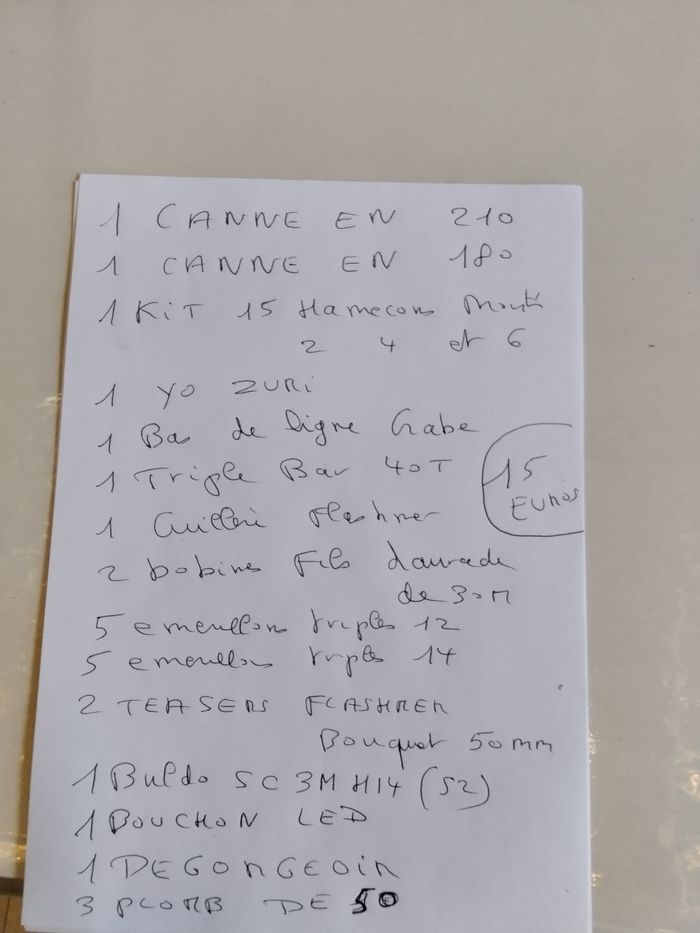 1 CANNE EN 210
1 CANNE EN 180
1 KiT 15 Hamecons Monté
2 4 et 6
1 YO ZURi
1 Bas de ligne Crabe
1 Triple Bar 40T
15
EUROS
1 Cuillère Flashmer
2 bobines Fils daurade
de 30M
5 emerillons triples 12
5 emerillons triples 14
2 TEASERS FLASHMER
Bouquet 50mm
1 Buldo SC 3M H14 (S2)
1 BOUCHON LED
1 DEGORGEOIR
3 PLOMB DE 50